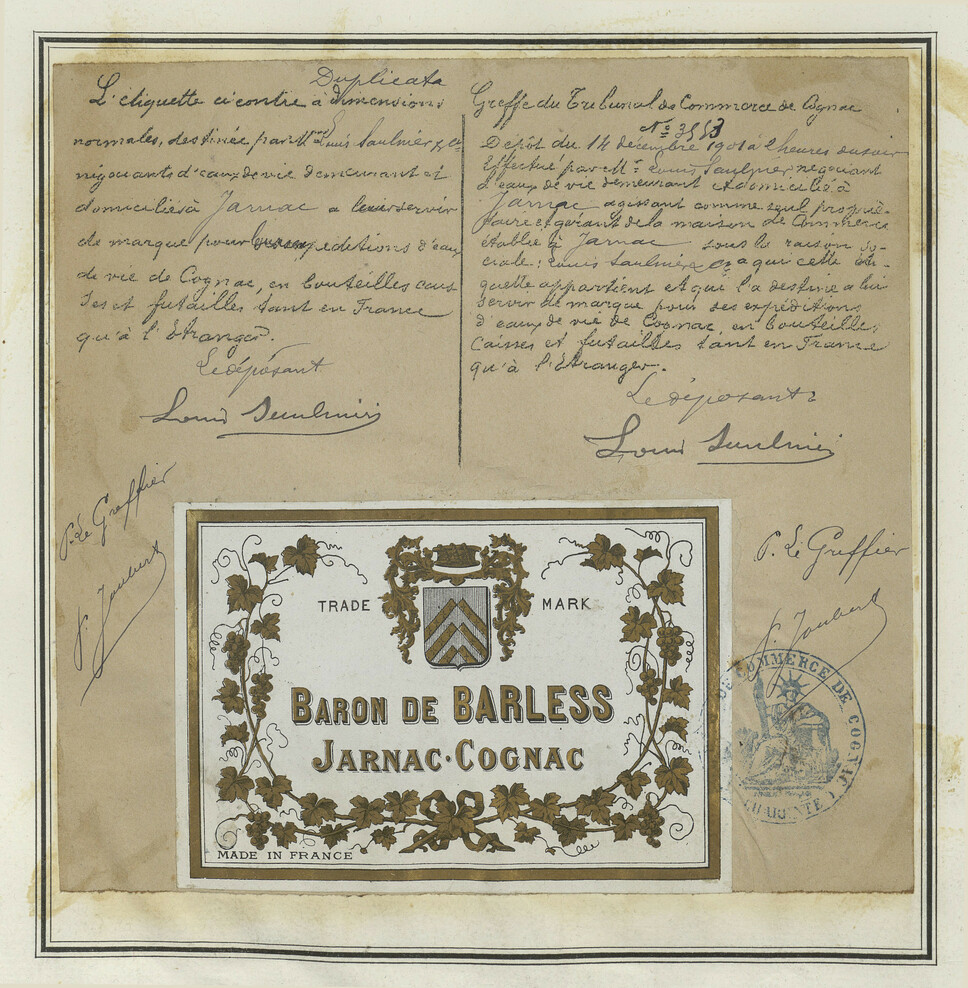 Duplicata
L'étiquette ci contre à dimensions
normales, destinée par Mr Louis Saulnier & Cie
négociants d'eaux de vie demeurant et
domiciliés à Jarnac a leur servir
de marque pour expéditions d'eaux
de vie de Cognac, en bouteilles cais
ses et futailles tant en France
qu'à l'Etranger.
Le déposant
Louis Saulnier
P. Le Greffier
Joubert
Greffe du Tribunal de Commerce de Cognac
No
Dépôt du 14 décembre 1901 à heures du soir
Effectué par Mr Louis Saulnier négociant
d'eaux de vie demeurant et domicilié à
Jarnac agissant comme seul proprié-
taire et gérant de la maison de Commerce
établie à Jarnac sous la raison so-
ciale: Louis Saulnier & Cie a qui cette éti-
quette appartient et qui l'a destinée a lui
servir de marque pour ses expéditions
d'eaux de vie de Cognac, en bouteilles
Caisses et futailles tant en France
qu'à l'Etranger.
Le déposant
Louis Saulnier
P. Le Greffier
Joubert
TRADE MARK
BARON DE BARLESS
JARNAC·COGNAC
MADE IN FRANCE
DE COMMERCE DE COGNAC
CHARENTE